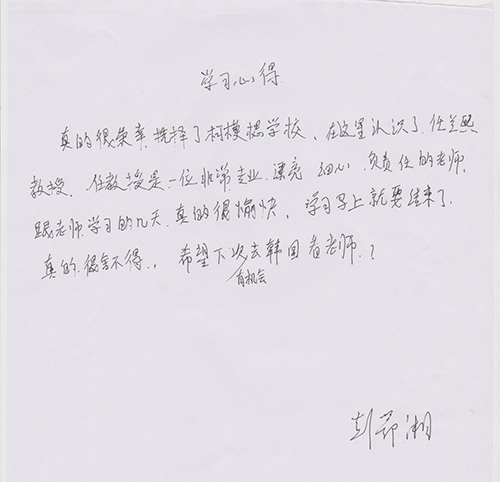 学习心得
真的很荣幸.选择了柯模思学校、在这里认识了.任兰熙
教授.任教授是一位非常专业.漂亮.细心.负责任的老师.
跟老师学习的几天.真的很愉快.学习马上就要结束了.
真的.很舍不得..希望下次去韩国看老师.?
有机会